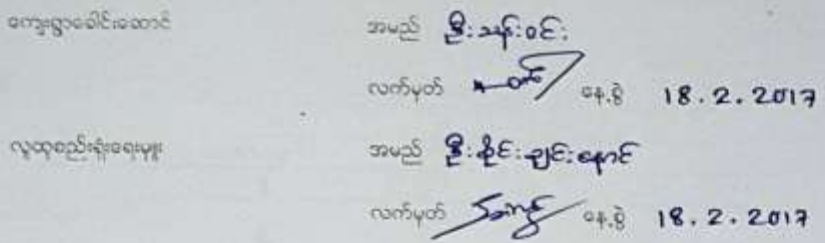 ကျေးရွာခေါင်းဆောင် အမည် ဦးသန်းဝင်း
လက်မှတ် နေ့စွဲ 18.2.2017
လူထုစည်းရုံးရေးမှူး အမည် ဦးစိုင်းချင်းနောင်
လက်မှတ် နေ့စွဲ 18.2.2017